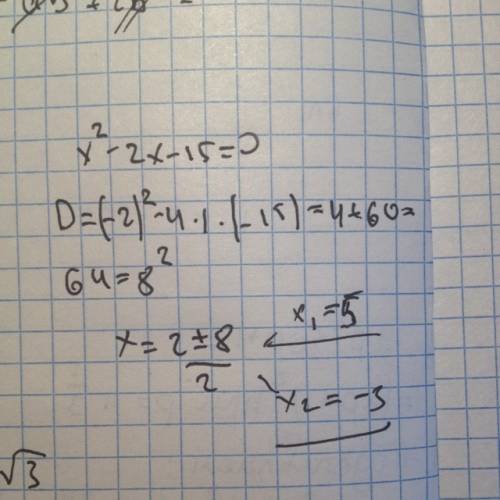 x² - 2x - 15 = 0
D = (-2)² - 4 · 1 · (-15) = 4 + 60 =
64 = 8²
x = (2 ± 8) / 2
x₁ = 5
x₂ = -3
√3